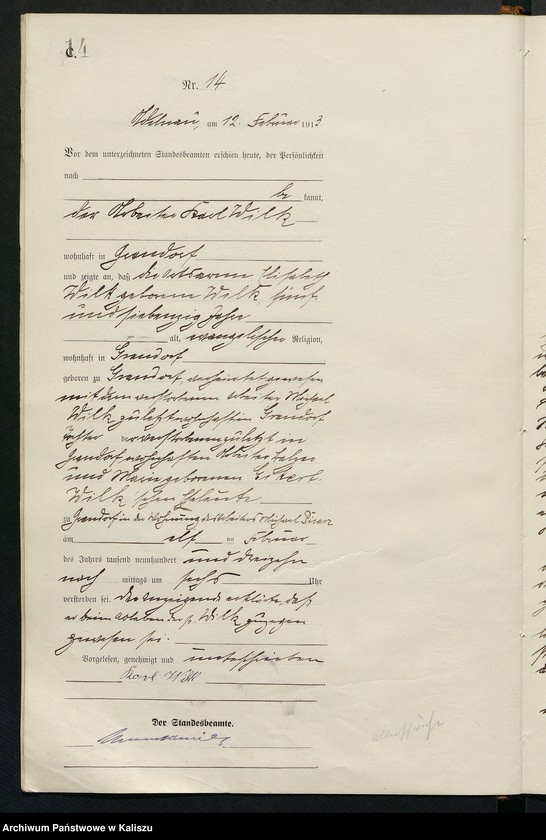 14
C.
Nr. 14
Adelnau, am 12. Februar 1913
Vor dem unterzeichneten Standesbeamten erschien heute, der Persönlichkeit
nach
be kannt,
der Arbeiter Karl Wilk
wohnhaft in Grandorf
und zeigte an, daß die Ortsarme Elisabeth
Wilk geborene Wilk, fünf
und siebenzig Jahre
alt, evangelischer Religion,
wohnhaft in Grandorf
geboren zu Grandorf, verheiratet gewesen
mit dem verstorbenen Arbeiter Michael
Wilk zuletzt wohnhaft in Grandorf
Tochter der verstorbenen zuletzt in
Grandorf wohnhaften Arbeiter
und geborenen
Wilk'schen Eheleute
zu Grandorf in der Wohnung des Arbeiters Michael
am elf ten Februar
des Jahres tausend neunhundert und dreizehn
nach mittags um sechs Uhr
verstorben sei. Der Anzeigende erklärte, daß
er beim Ableben der p. Wilk zugegen
gewesen sei.
Vorgelesen, genehmigt und unterschrieben
Karl Wilk
Der Standesbeamte.
Archiwum Państwowe w Kaliszu